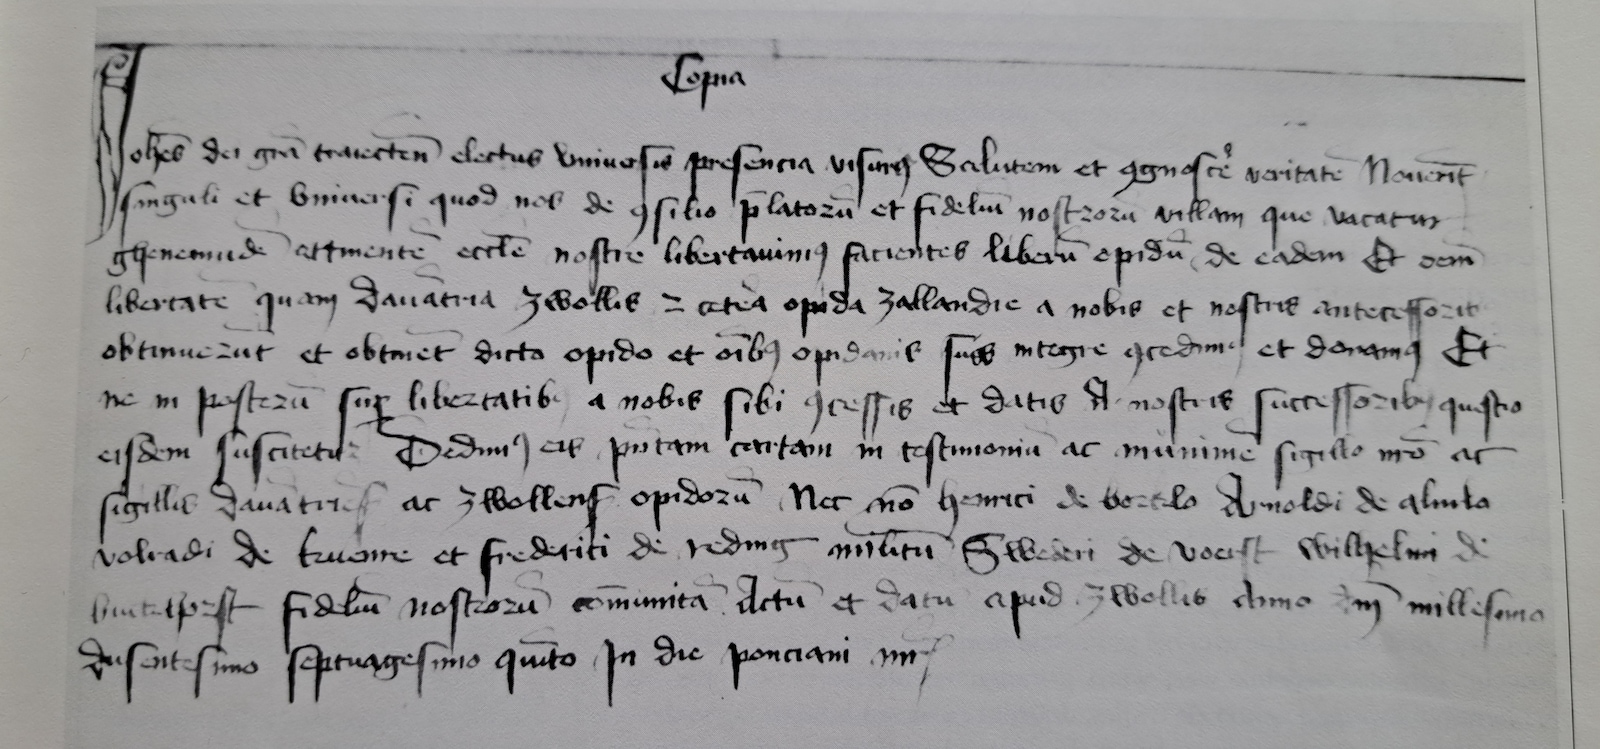 Copia
Johēs dei grā traiecteñ electus vniuersis presencia visurꝭ Salutem et ꝯgnoscē veritatē Nouerīt
singuli et vniuersi quod nos de ꝯsilio p̄latorū et fideliū nostrorū villam que vacatur
ghenemudē attinentē eccłe nostre libertauimꝰ facientes liberū opidū de eadem Et oem̄
libertatē quam dauātria zwollis ⁊ cetēa opida zallandie a nobis et nostris antecessorib
obtinuerūt et obtinēt dicto opido et oībꝰ opidanis suis integre ꝯcedimꝰ et donamꝰ Et
ne in posterū suꝑ libertatibꝰ a nobis sibi ꝯcessis et datis A nostris successoribꝰ questio
eisdem suscitetur Dedimꝰ eis pñtam cartam in testimoniū ac munimē sigillo nr̄o ac
sigillis dauātrieñ ac zwolleñ opidorū Nec nō henrici de Arnoldi de
volradi de et frederici de reding militū Swederi de voerst wilhelmi de
fideliū nostrorū cōmunita Actū et datū apud zwollis Anno dnī millesimo
dusentesimo septuagesimo quīto In die ponciani mr̄